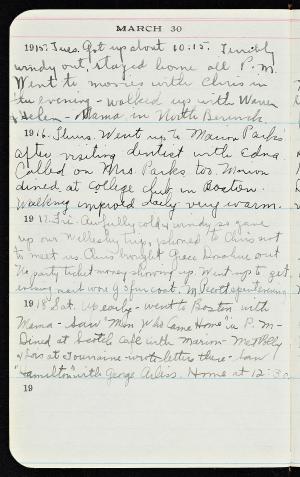 MARCH 30
1915. Tues. Got up about 10.15. Terribly
windy out, stayed home all P. M.
Went to movies with Chris in
the evening - walked up with Warren
& Helen - Mama in North Berwick.
1916. Thurs. Went up to Marion Parks'
after visiting dentist with Edna
Called on Mrs. Parks too Marion
dined at College club in Boston.
Walking improved daily very warm.
1917. Fri. Awfully cold & windy so gave
up our Wellesley trip, phoned to Chris not
to meet us. Chris brought Grace Donahue out
No party ticket money showing up. Went up to get
evening next wore of fur coat. M Scott spent evening
1918 Sat. Up early - went to Boston with
Mama - saw "Men Who Came Home" in P. M -
Dined at Scotch Cafe with Marion - Met Polly
& Lois at Touraine - wrote letters there - saw
"Hamilton" with George Arliss. Home at 12:30
19